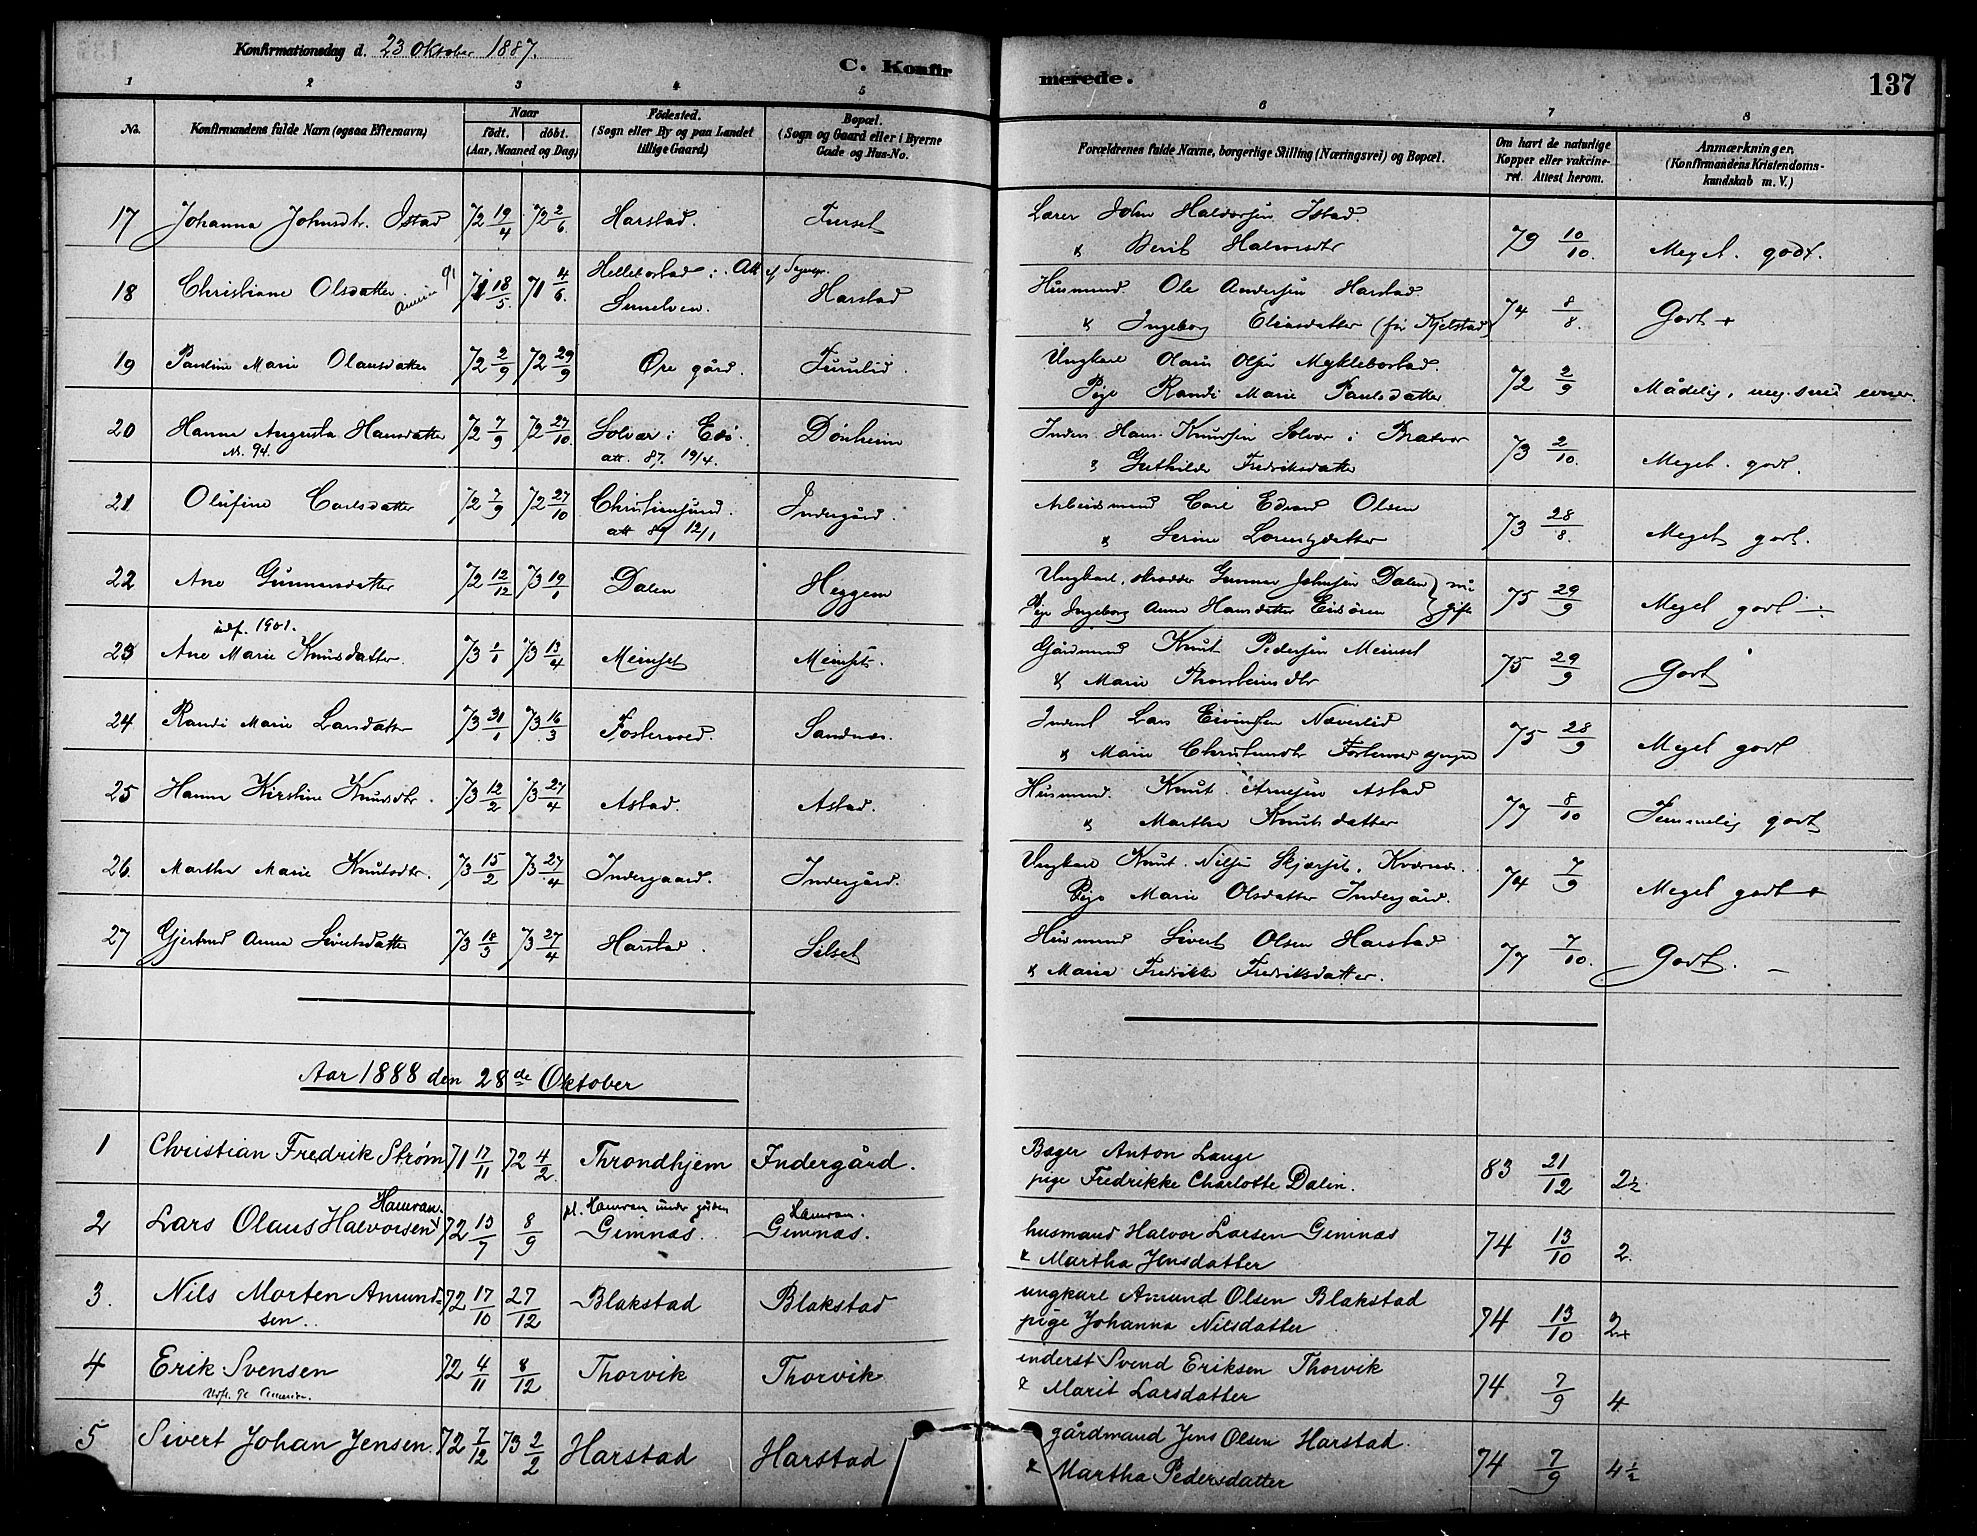 Konfirmationsdag d. 23 Oktober 1887.
C. Konfirmerede.
137
1 2 3 4 5 6 7 8
No.
Konfirmandens fulde Navn (ogsaa Efternavn)
Naar
født. døbt.
(Aar, Maaned og Dag)
Fødested.
(Sogn eller By og paa Landet
tillige Gaard)
Bopæl.
(Sogn og Gaard eller i Byerne
Gade og Hus-No.
Forældrenes fulde Navne, borgerlige Stilling (Næringsvei) og Bopæl.
Om havt de naturlige
Kopper eller vakcine-
ret. Attest herom.
Anmærkninger.
(Konfirmandens Kristendoms-
kundskab m. V.)
17 Johanna Johnsdtr. Istad 72 19/4 72 2/6 Harstad. Furset Lærer John Halvorsen Istad.
& Berit Halvorsdtr 79 10/10. Meget godt.
18 Christiane Olsdatter 71 18/5. 71 4/6. Harstad Husmand Ole Andersen Harstad
& Ingeborg Eliasdatter (før Kjelstad) 74 8/8. Godt +
19 Pauline Marie Olausdatter 72 2/9 72 29/9 Øre gård. Furulid. Ungkarl Olaus Olsen Myklebostad.
Pige Randi Marie Paulsdatter 72 2/9 Mådelig, meg. små evner.
20 Hanna Augusta Hansdatter 72 7/9 72 27/10. Solvær i Edø. Dønheim Inders. Hans Knudsen Solvær i Bratvær
att. 87. 19/4. & Fredriksdatter 73 2/10. Meget godt.
21 Olufine Carlsdatter 72 7/9 72 27/10 Christiansund. Indergård. Arbeidsmand Carl Edvard Olsen
att 87 12/1 & Serine Lorentzdatter 73 28/8. Meget godt.
22 Ane Gunnarsdatter 72 12/12 73 19/1 Dalen Heggem Ungkarl, skrædder Gunnar Johnsen Dalen } nu
Pige Ingeborg Anne Hansdatter } gift 75 29/9 Meget godt
udf. 1901.
23 Ane Marie Knutsdatter. 73 1/1 73 13/4 Meinset Meinset. Gårdmand Knut Pedersen Meinset
& Marie Thorsteinsdtr 75 29/9 Godt
24 Randi Marie Larsdatter 73 31/1 73 16/3 Fostervold. Sandnes. Inderst Lars Eivindsen Næverlid
& Marie 75 28/9 Meget godt
25 Hanna Kirstine Knutsdtr. 73 12/2 73 27/4 Astad. Astad. Husmand. Knut Arnesen Astad
& Martha Knutsdatter 77 8/10 Temmelig godt
26 Martha Marie Knutsdtr. 73 15/2 73 27/4 Indergaard. Indergård. Ungkarl Knut Nilsen Skjærset, Kvernes.
Pige Marie Olsdatter Indergård. 74 7/9 Meget godt +
27 Gjertrud Anna Sivertsdatter 73 18/3 73 27/4 Harstad. Silset Husmand Sivert Olsen Harstad
& Maria Fredrikke Fredriksdatter. 77 7/10. Godt. –
Aar 1888 den 28de Oktober
1 Christian Fredrik Strøm 71 17/11 72 4/2 Throndhjem Indergård. Bager Anton Lange
pige Fredrikke Charlotte Dalin. 83 21/12 2½
Hamran. pl. Hamran under gården Hamran.
2 Lars Olaus Halvorsen 72 13/7 8/9 Gimnas. Gimnas. husmand Halvor Larsen Gimnas
& Martha Jensdatter 74 13/10 2.
3. Nils Morten Amund-
sen. 72 17/10 27/12 Blakstad Blakstad ungkarl Amund Olsen Blakstad
pige Johanna Nilsdatter 74 13/10 2+
4 Erik Svensen 72 4/11 8/12 Thorvik Thorvik inderst Svend Eriksen Thorvik
& Marit Larsdatter 74 7/9 4
5 Sivert Johan Jensen. 72 7/12 73 2/2 Harstad Harstad gårdmand Jens Olsen Harstad.
& Martha Pedersdatter 74 7/9 4½